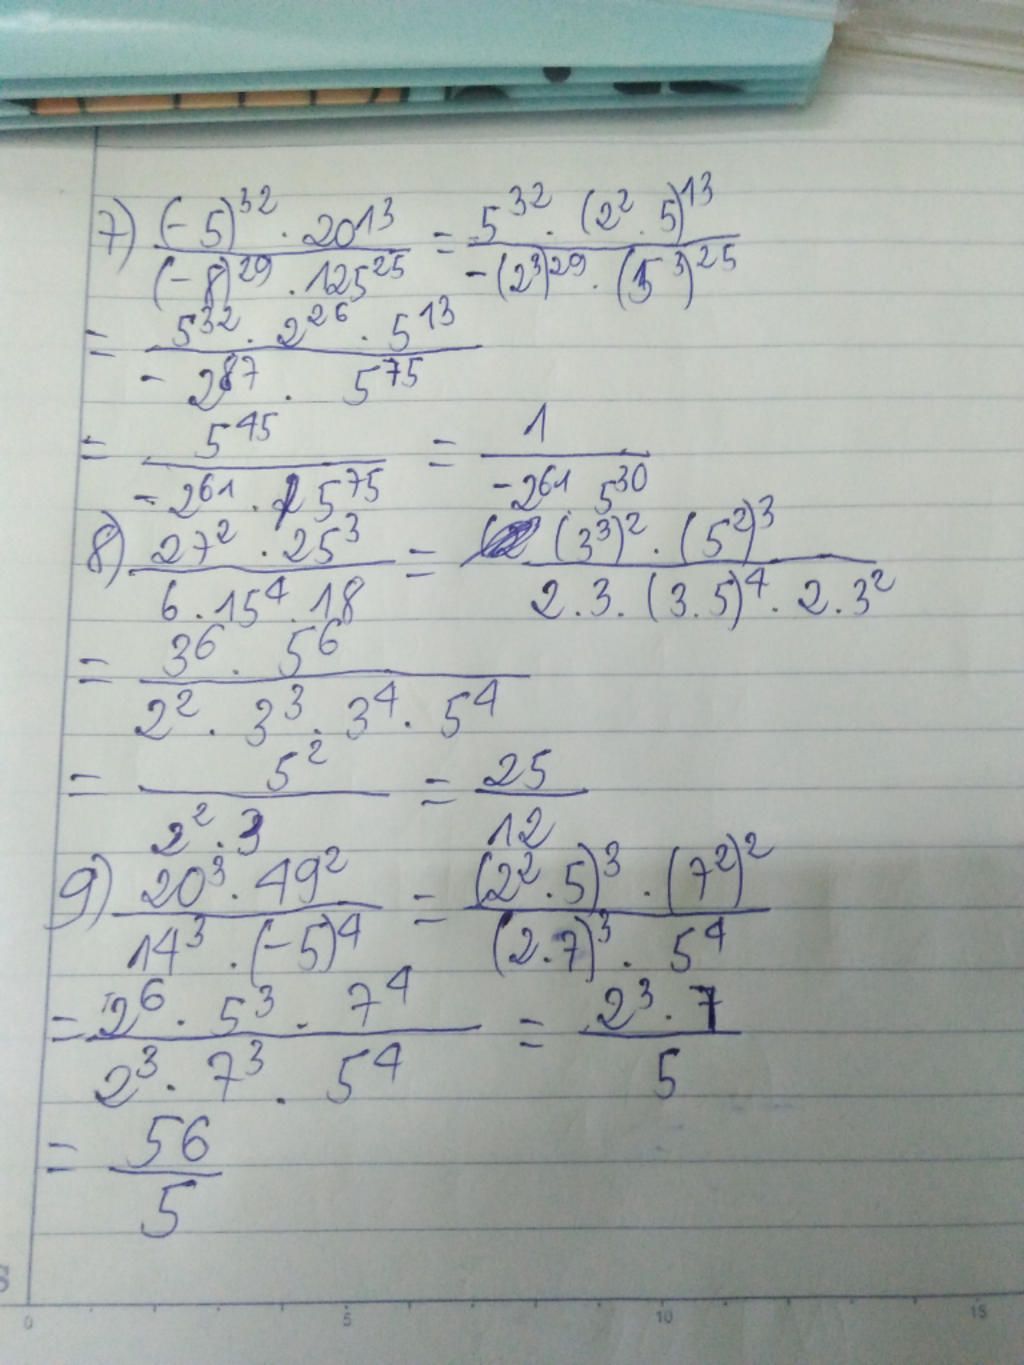 7) (-5)³² · 20¹³ / (-8)²⁹ · 125²⁵ = 5³² · (2² · 5)¹³ / -(2³)²⁹ · (5³)²⁵
= 5³² · 2²⁶ · 5¹³ / - 2⁸⁷ · 5⁷⁵
= 5⁴⁵ / - 2⁶¹ · 5⁷⁵ = 1 / -2⁶¹ · 5³⁰
8) 27² · 25³ / 6 · 15⁴ · 18 = (3³)² · (5²)³ / 2 . 3 . (3 . 5)⁴ · 2 . 3²
= 3⁶ · 5⁶ / 2² · 3³ · 3⁴ · 5⁴
= 5² / 2² · 3 = 25 / 12
9) 20³ · 49² / 14³ · (-5)⁴ = (2² · 5)³ · (7²)² / (2 · 7)³ · 5⁴
= 2⁶ · 5³ · 7⁴ / 2³ · 7³ · 5⁴ = 2³ · 7 / 5
= 56 / 5
0 5 10 15